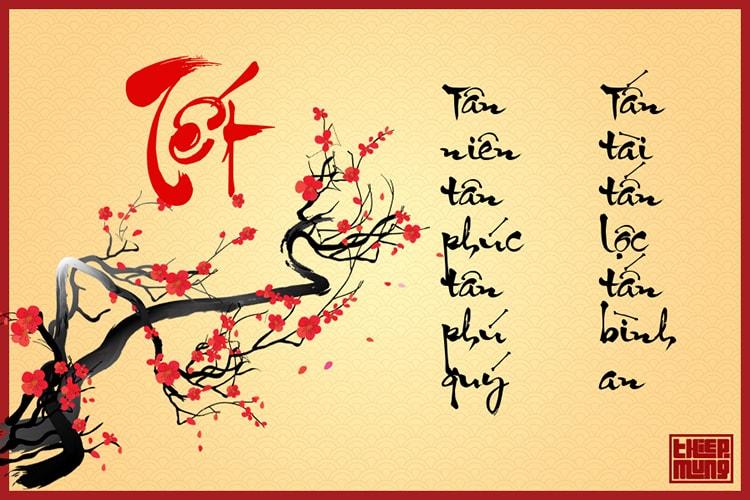 Tết
Tân
niên
tân
phúc
tân
phú
quý
Tấn
tài
tấn
lộc
tấn
bình
an
THIEP
MUNG